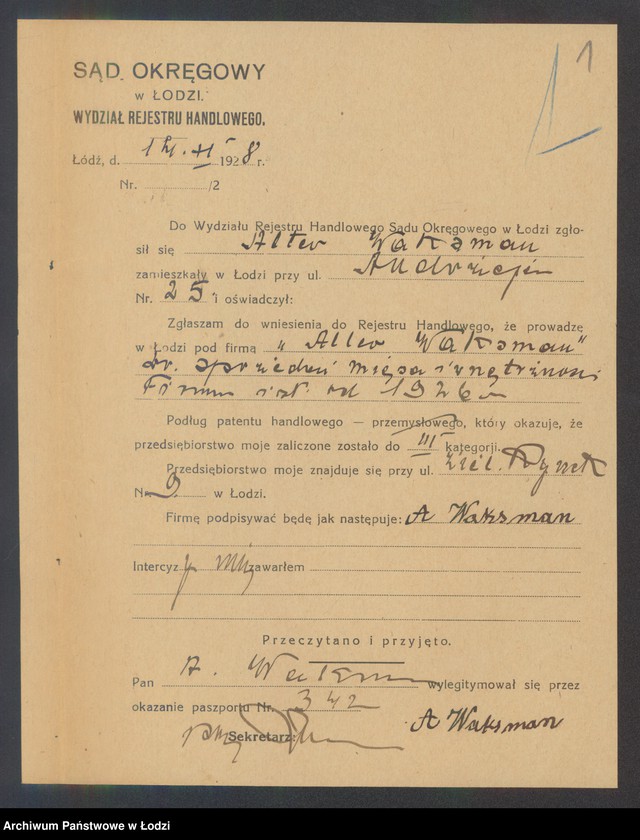 1
SĄD OKRĘGOWY
w ŁODZI.
WYDZIAŁ REJESTRU HANDLOWEGO.
Łódź, d. XI 1928 r.
Nr. /2
Do Wydziału Rejestru Handlowego Sądu Okręgowego w Łodzi zgło-
sił się Alter Waksman
zamieszkały w Łodzi przy ul. Andrzeja
Nr. 25 i oświadczył:
Zgłaszam do wniesienia do Rejestru Handlowego, że prowadzę
w Łodzi pod firmą „Alter Waksman"
sprzedaż mięsa i wnętrzności
Firma ist. od 1926 r
Podług patentu handlowego — przemysłowego, który okazuje, że
przedsiębiorstwo moje zaliczone zostało do III kategorji.
Przedsiębiorstwo moje znajduje się przy ul. Rynek
N 9 w Łodzi.
Firmę podpisywać będę jak następuje: A Waksman
Intercyzy nie zawarłem
Przeczytano i przyjęto.
Pan A. Waksman wylegitymował się przez
okazanie paszportu Nr. 342
A Waksman
Sekretarz:
Archiwum Państwowe w Łodzi